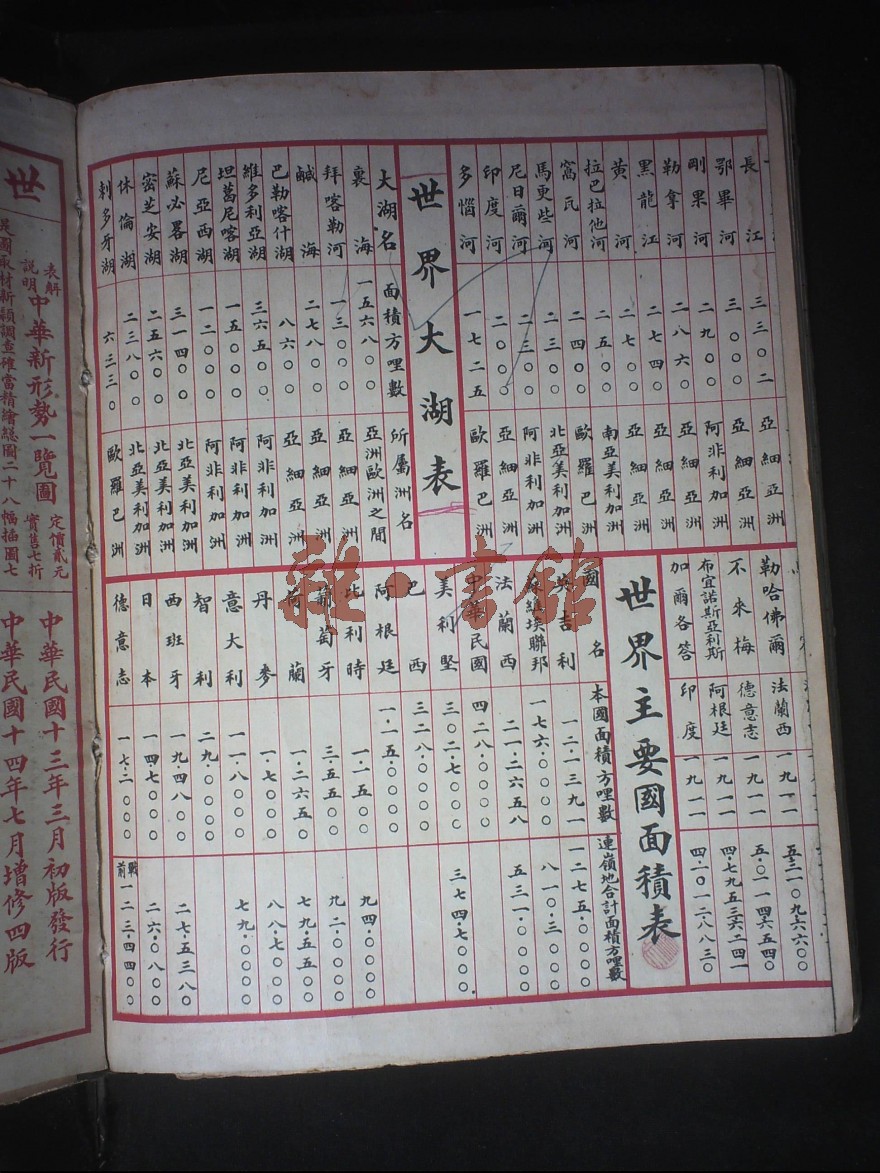 長江 三三〇二 亞細亞洲
鄂畢河 三〇〇〇 亞細亞洲
剛果河 二九〇〇 阿非利加洲
勒拿河 二八六〇 亞細亞洲
黑龍江 二七四〇 亞細亞洲
黃河 二七〇〇 亞細亞洲
拉巴拉他河 二五〇〇 南亞美利加洲
窩瓦河 二四〇〇 歐羅巴洲
馬更些河 二三〇〇 北亞美利加洲
尼日爾河 二三〇〇 阿非利加洲
印度河 二〇〇〇 亞細亞洲
多惱河 一七二五 歐羅巴洲
世界大湖表
大湖名 面積方哩數 所屬洲名
裏海 一五六八〇〇 亞洲歐洲之間
拜喀勒河 一三〇〇〇 亞細亞洲
鹹海 二七八〇〇 亞細亞洲
巴勒喀什湖 八六〇〇 亞細亞洲
維多利亞湖 三六五〇〇 阿非利加洲
坦葛尼喀湖 一五〇〇〇 阿非利加洲
尼亞西湖 一二〇〇〇 阿非利加洲
蘇必畧湖 三一四〇〇 北亞美利加洲
密芝安湖 二五六〇〇 北亞美利加洲
休倫湖 二三八〇〇 北亞美利加洲
剌多牙湖 六三三〇 歐羅巴洲
勒哈佛爾 法蘭西 一九一一 五·三一〇·九六六〇〇
不來梅 德意志 一九一一 五·〇一四·六五四〇
布宜諾斯亞利斯 阿根廷 一九一一 四·七九五·三六二四一
加爾各答 印度 一九一一 四·二〇一·二八八三〇
世界主要國面積表
國名 本國面積方哩數 連嶺地合計面積方哩數
英吉利 一二一三九一 一二七五·〇〇〇〇
蘇維埃聯邦 一七六·〇〇〇〇 八一〇·三〇〇〇
法蘭西 二一·二六五八 五三一·〇〇〇〇
中華民國 四二八·〇〇〇〇
美利堅 三〇二·七〇〇〇 三七四·七〇〇〇
巴西 三二八·〇〇〇〇
阿根廷 一·一五〇〇〇〇
比利時 一·一五〇〇 九四·〇〇〇〇
葡萄牙 三·五五〇〇 九二·〇〇〇〇
荷蘭 一·二六五〇 七九·五五〇〇
丹麥 一·七〇〇〇 八八·七〇〇〇
意大利 一一·八〇〇〇 七九·〇〇〇〇
智利 二九·〇〇〇〇
西班牙 一九·四八〇〇 二七·五三八〇
日本 一四·七〇〇〇 二六·〇八〇〇
德意志 一七·二〇〇〇 戰前一二三·四四〇〇
世
表解說明 中華新形勢一覽圖 定價貳元 實售七折
是圖取材新穎調查確當精繪總圖二十八幅插圖七
中華民國十三年三月初版發行
中華民國十四年七月增修四版
雜·書館